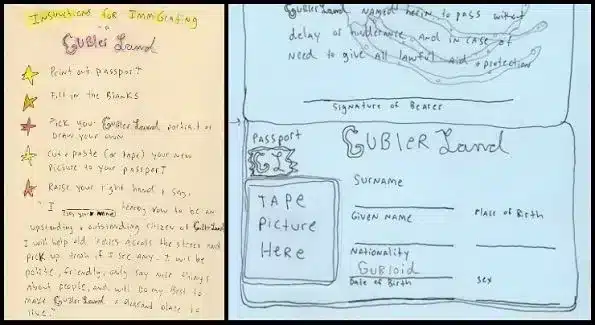 Instructions for Immigrating
to
Gubler Land
Print out passport
Fill in the Blanks
Pick your Gubler Land portrait or
Draw your own
Cut & paste (or tape) your new
Picture to your passport
Raise your right hand & say,
"I hereby vow to be an
(say your name)
upstanding & outstanding citizen of Gubler Land
I will help old ladies across the street and
pick up trash if I see any. I will be
polite, friendly, only say nice things
about people, and will do my Best to
make Gubler Land a pleasant place to
live."
Gubler Land named herin to pass without
delay or hinderance and in case of
need to give all lawful aid & protection
Signature of Bearer
Passport
GL
Gubler Land
TAPE
Picture
HERE
Surname
Given Name
Place of Birth
Nationality
Gubloid
Date of Birth
Sex